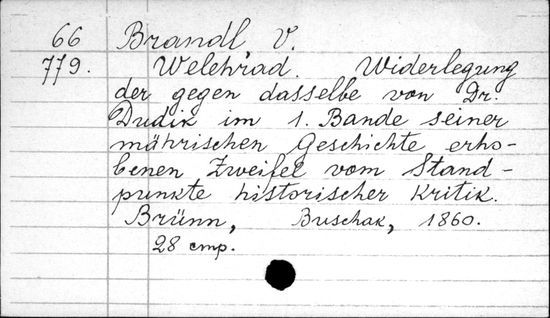 66 Brandl, V.
779. Welehrad. Widerlegung
der gegen dasselbe von Dr.
Dudik im 1. Bande seiner
mährischen Geschichte erho-
benen Zweifel vom Stand-
punkte historischer Kritik.
Brünn, Buschak, 1860.
28 стр.